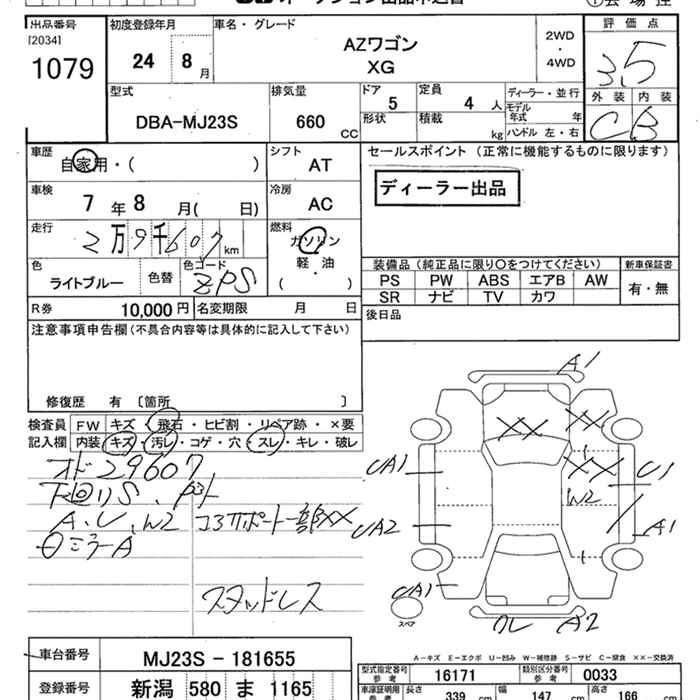 出品番号
[2034]
1079
初度登録年月
24 8 月
車名・グレード
AZワゴン
XG
2WD
・
4WD
評価点
3.5
外装 内装
C B
型式
DBA-MJ23S
排気量
660 CC
ドア 5
定員 4 人
形状
積載 kg
ディーラー・並行
モデル年式 年
ハンドル 左・右
車歴
自家用・( )
シフト
AT
セールスポイント (正常に機能するものに限ります)
ディーラー出品
車検
7 年 8 月( 日)
冷房
AC
走行
2万9千607km
燃料
ガソリン
軽・油
( )
色
ライトブルー
色替
色コード
ZPS
装備品 (純正品に限り○をつけてください)
PS PW ABS エアB AW
SR ナビ TV カワ
新車保証書
有・無
R券 10,000円
名変期限 月 日
後日品
注意事項申告欄(不具合内容等は具体的に記入して下さい)
修復歴 有 〔箇所 〕
検査員記入欄
FW キズ・飛石・ヒビ割・リペア跡・×要
内装 キズ・汚レ・コゲ・穴・スレ・キレ・破レ
オド29607
下回りS
A、U、W2
コアサポート一部XX
日ミラーA
スタッドレス
A1
XX
XX
UA1
XX
U1
W2
UA2
A1
UA1
スペア
クレ A2
A-キズ E-エクボ U-凹み W-補修跡 S-サビ C-腐食 XX-交換済
車台番号
MJ23S - 181655
登録番号
新潟 580 ま 1165
型式指定番号
参考
16171
類別区分番号
参考
0033
車庫証明用
参考
長さ 339 cm
幅 147 cm
高さ 166 cm